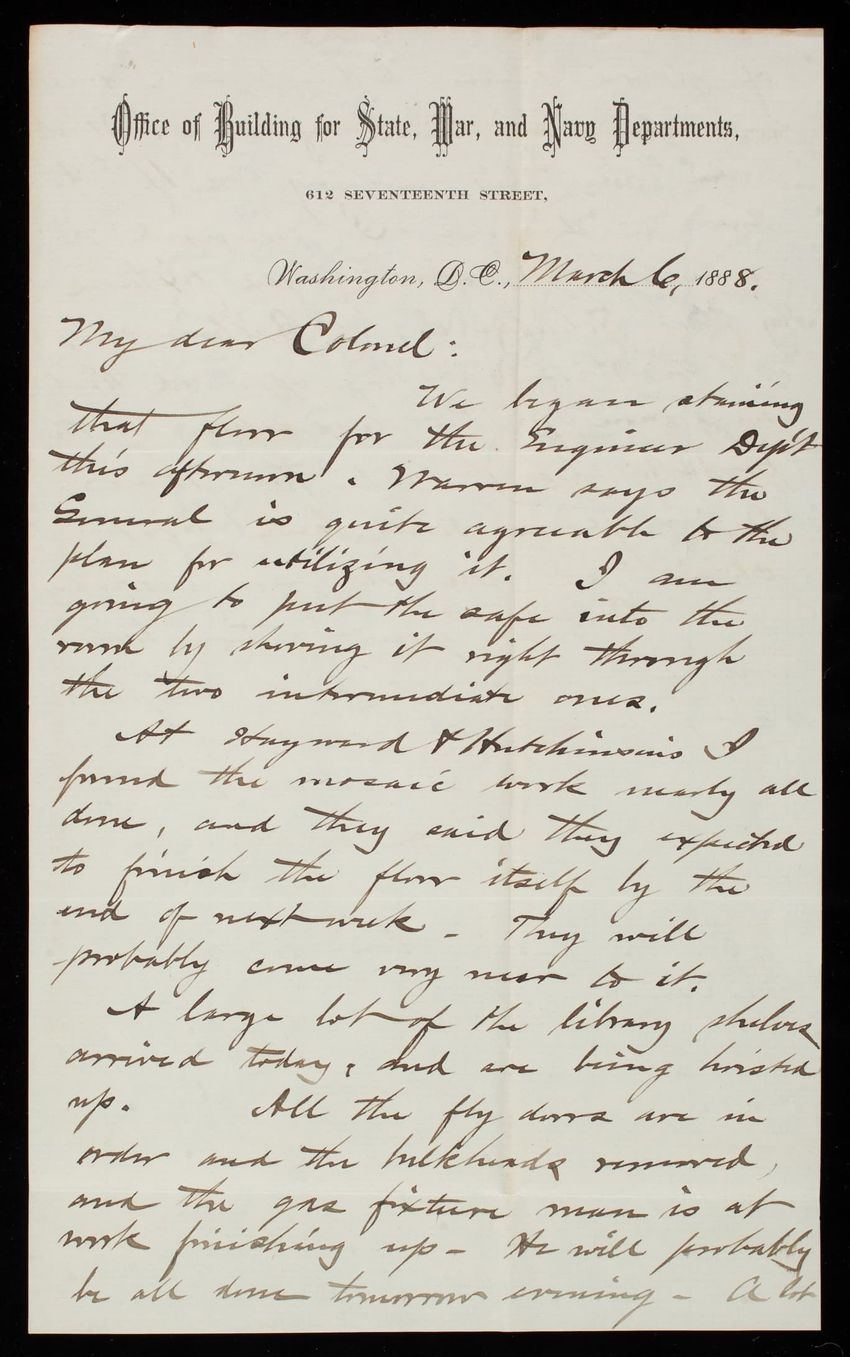 Office of Building for State, War, and Navy Departments,
612 SEVENTEENTH STREET,
Washington, D.C., March 6, 1888.
My dear Colonel:
We began staining
that floor for the Engineer Dep't
this afternoon. Warren says the
General is quite agreeable to the
plan for utilizing it. I am
going to put the safe into the
room by shoving it right through
the two intermediate ones.
At Hayward & Hutchinson's I
found the mosaic work nearly all
done, and they said they expected
to finish the floor itself by the
end of next week - They will
probably come very near to it.
A large lot of the library shelves
arrived today, and are being hoisted
up. All the fly doors are in
order and the bulkheads removed,
and the gas fixture man is at
work finishing up - He will probably
be all done tomorrow evening - A lot